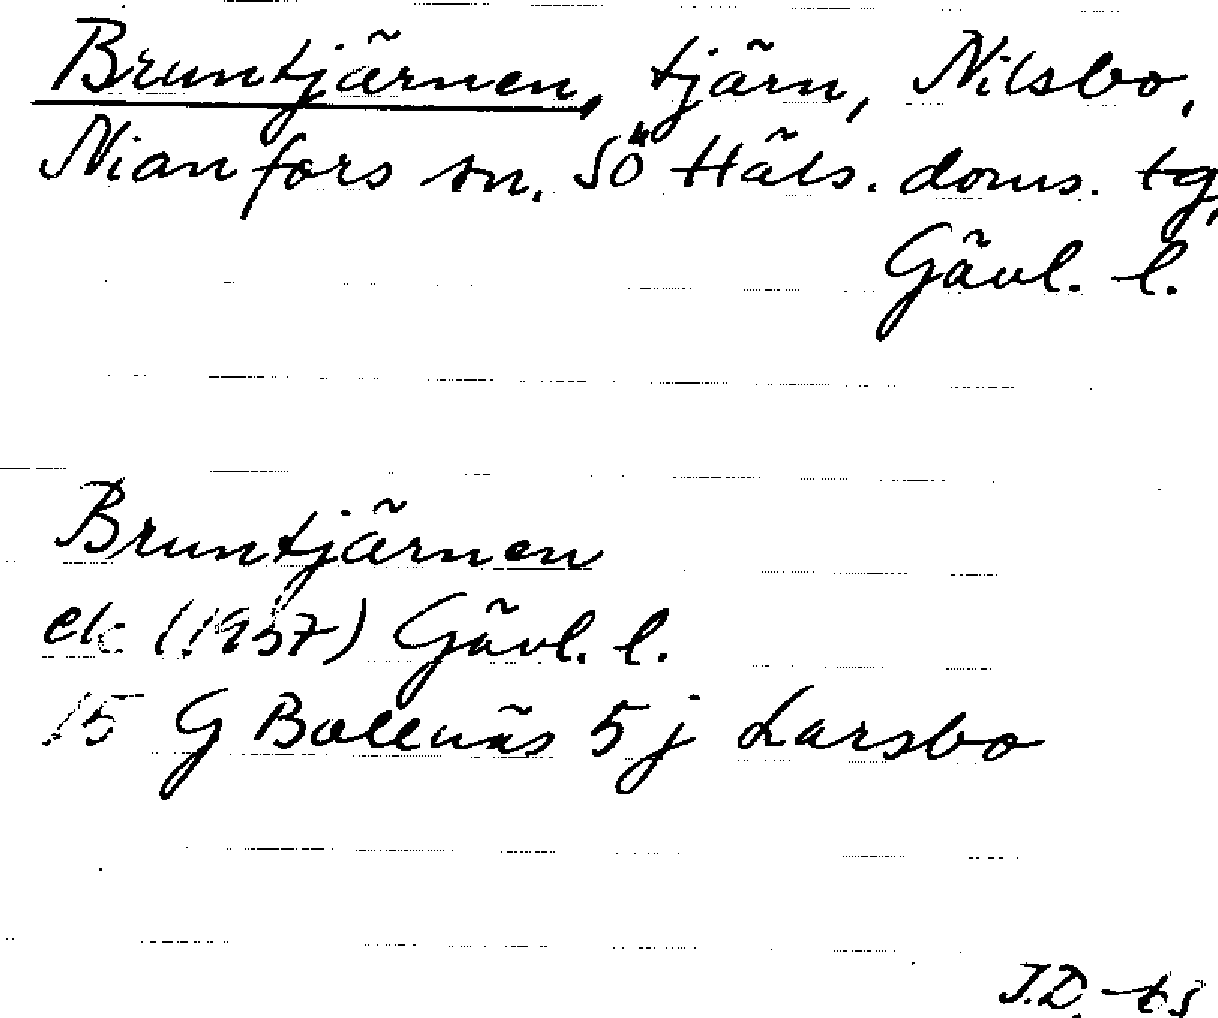 Bruntjärnen, tjärn, Nilsbo,
Nianfors sn. SÖ Häls. doms. tg,
Gävl. l.
Bruntjärnen
ek (1957) Gävl. l.
15 G Bollnäs 5j Larsbo
J.D.-ts